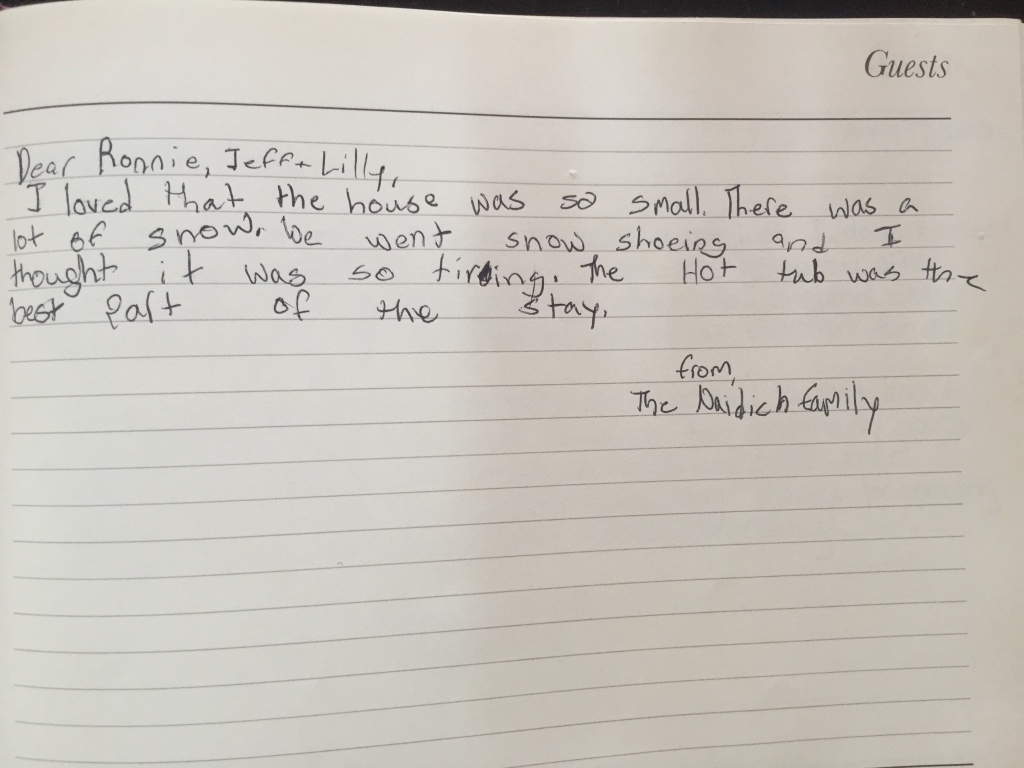 Guests
Dear Ronnie, Jeff + Lilly,
I loved that the house was so small. There was a
lot of snow. We went snow shoeing and I
thought it was so tiring. The Hot tub was the
best part of the stay.
from,
The Naidich family